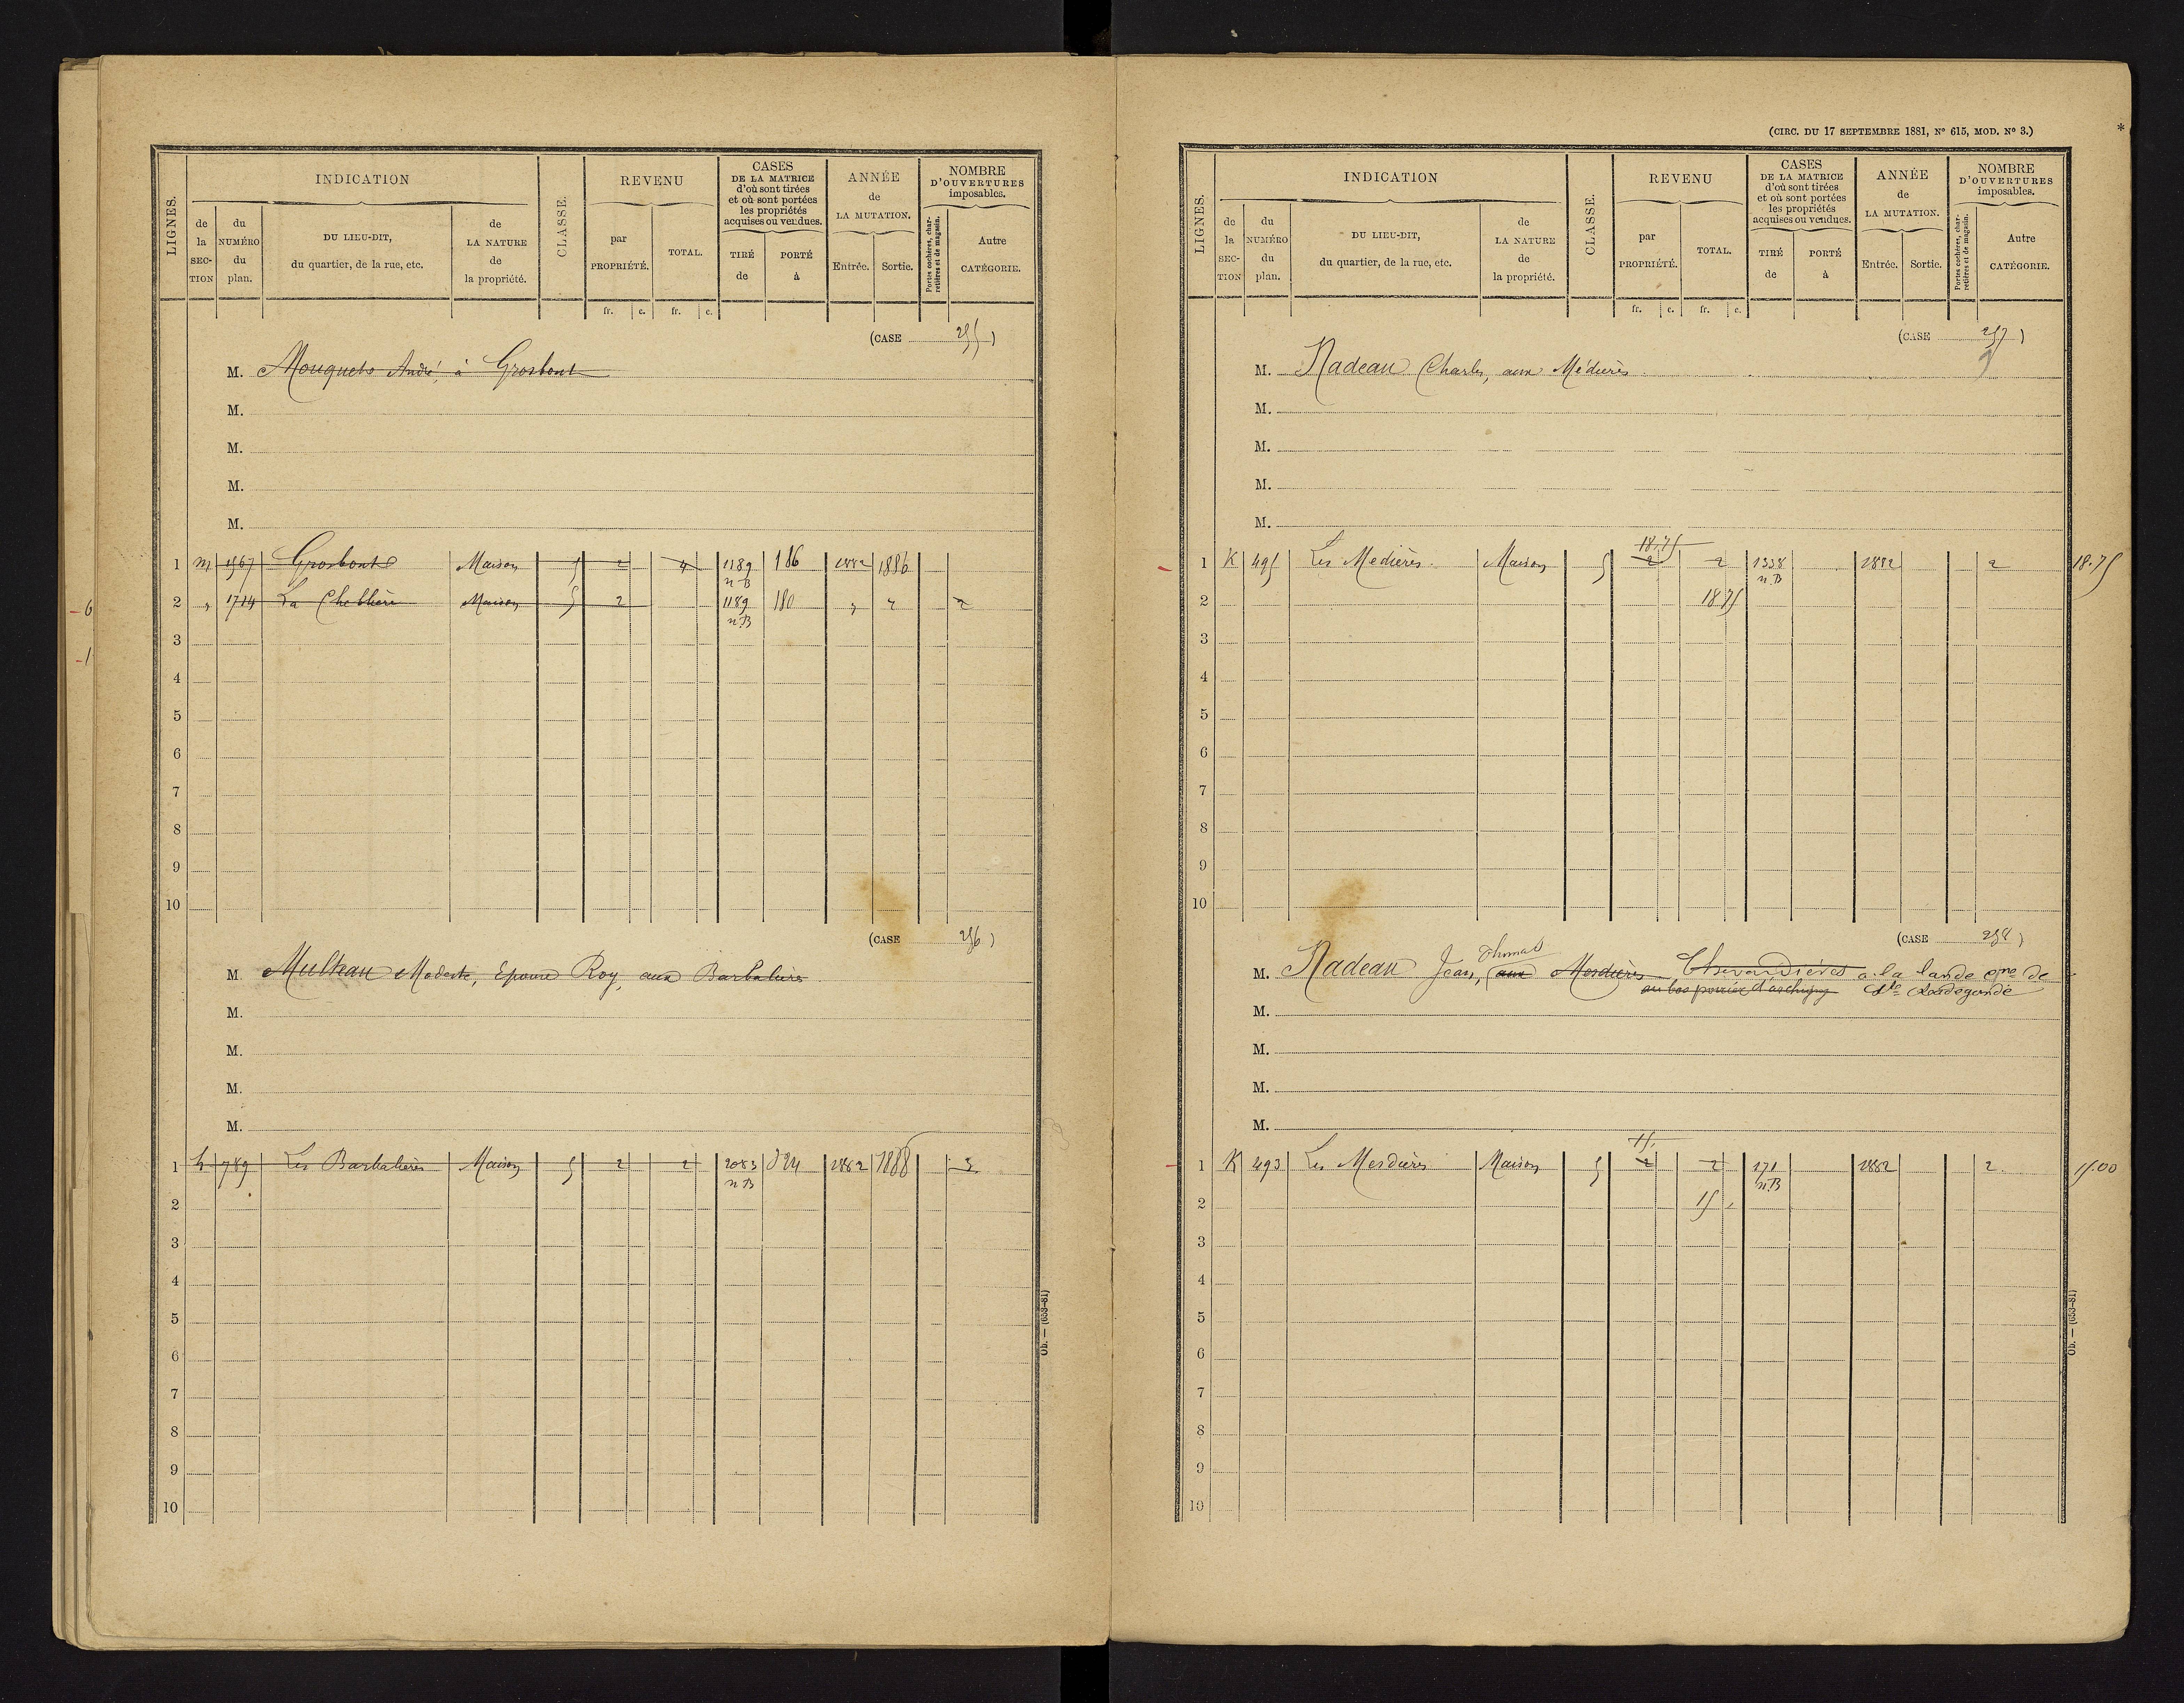 LIGNES.
INDICATION
de la SECTION
du NUMÉRO du plan.
DU LIEU-DIT, du quartier, de la rue, etc.
de LA NATURE de la propriété.
CLASSE.
REVENU
par PROPRIÉTÉ.
TOTAL.
fr. c. fr. c.
CASES DE LA MATRICE d'où sont tirées et où sont portées les propriétés acquises ou vendues.
TIRÉ de
PORTÉ à
ANNÉE de LA MUTATION.
Entrée. Sortie.
NOMBRE D'OUVERTURES imposables.
Portes cochères, charretières et de magasin.
Autre CATÉGORIE.
(CASE 255)
M. Mouquets André, à Grosbont
M.
M.
M.
M.
1 m 1567 Grosbont Maison 5 2 4 1189 n.B 186 1882 1886
2 " 1714 La Chebliere Maison 5 2 1189 n.B 180 " " 2
3
4
5
6
7
8
9
10
(CASE 256)
M. Multeau Modeste, Epouse Roy, aux Barbalières
M.
M.
M.
M.
1 h 789 Les Barbalières Maison 5 2 2 2083 n.B 324 1882 1888 3
2
3
4
5
6
7
8
9
10
Ob. — (653-81)
- 6
- 1
(CIRC. DU 17 SEPTEMBRE 1881, N° 615, MOD. N° 3.)
LIGNES.
INDICATION
de la SECTION
du NUMÉRO du plan.
DU LIEU-DIT, du quartier, de la rue, etc.
de LA NATURE de la propriété.
CLASSE.
REVENU
par PROPRIÉTÉ.
TOTAL.
fr. c. fr. c.
CASES DE LA MATRICE d'où sont tirées et où sont portées les propriétés acquises ou vendues.
TIRÉ de
PORTÉ à
ANNÉE de LA MUTATION.
Entrée. Sortie.
NOMBRE D'OUVERTURES imposables.
Portes cochères, charretières et de magasin.
Autre CATÉGORIE.
(CASE 257)
M. Nadeau Charles, aux Médières
M.
M.
M.
M.
18.75
1 K 495 Les Medières Maison 5 2 2 1338 n.B 1882 2 18.75
2 18 75
3
4
5
6
7
8
9
10
(CASE 258)
Thomas
M. Nadeau Jean, (aux Mesdières Chevardières a la lande cne de
au bas Ste Radegonde
M.
M.
M.
M.
15.
1 K 493 Les Mesdières Maison 5 2 2 171 n.B 1882 2. 15.00
2 15 "
3
4
5
6
7
8
9
10
Ob. — (653-81)